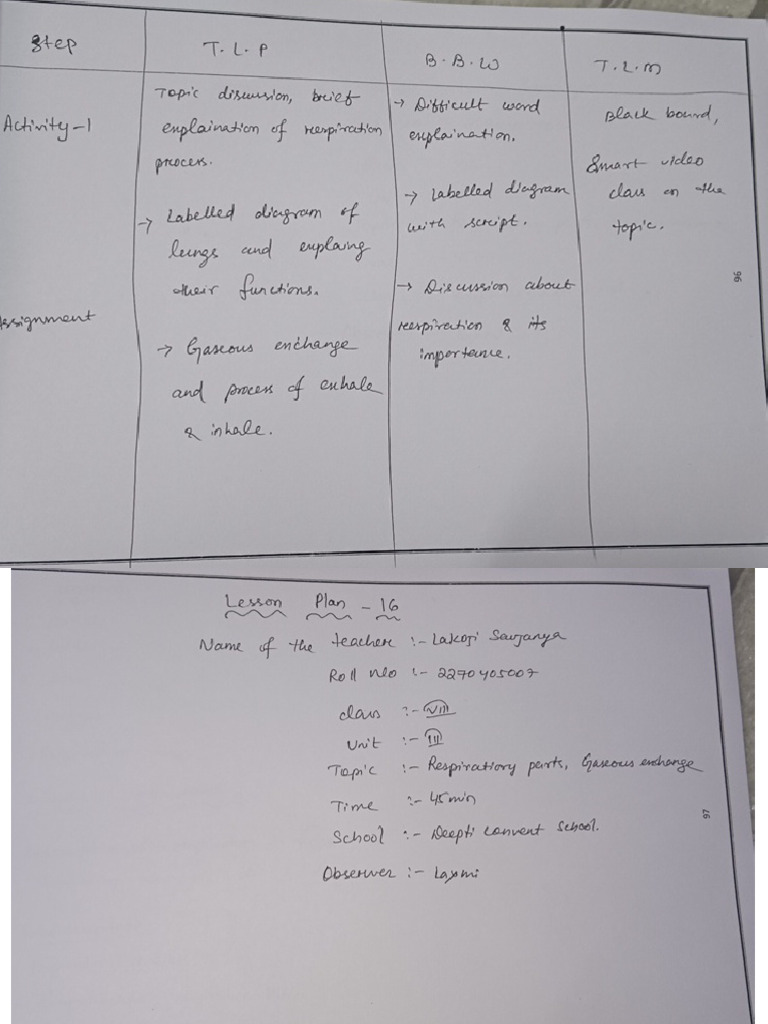 Step
T. L. P
B. B. W
T. L. M
Activity-1
Topic discussion, brief
explaination of respiration
process.
→ Labelled diagram of
lungs and explaing
their functions.
Assignment
→ Gaseous exchange
and process of exhale
& inhale.
→ Difficult word
explaination.
→ Labelled diagram
with script.
→ Discussion about
respiration & its
importance.
Black board,
Smart video
class on the
topic.
96
Lesson Plan - 16
Name of the teacher :- Lakoji Sowjanya
Roll no :- 2270405007
class :- VIII
Unit :- III
Topic :- Respiratiory parts, Gaseous exchange
Time :- 45min
School :- Deepti convent School.
Observer :- Laxmi
97